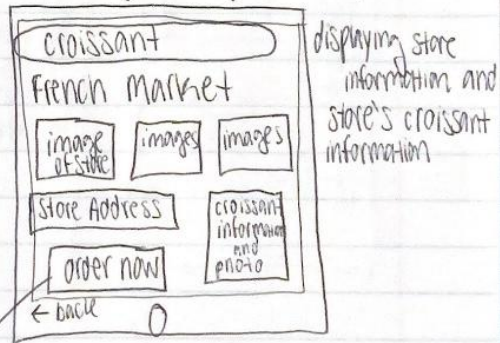 croissant
French Market
image of store
images
images
Store Address
croissant information and photo
order now
← back
displaying store
information and
store's croissant
information